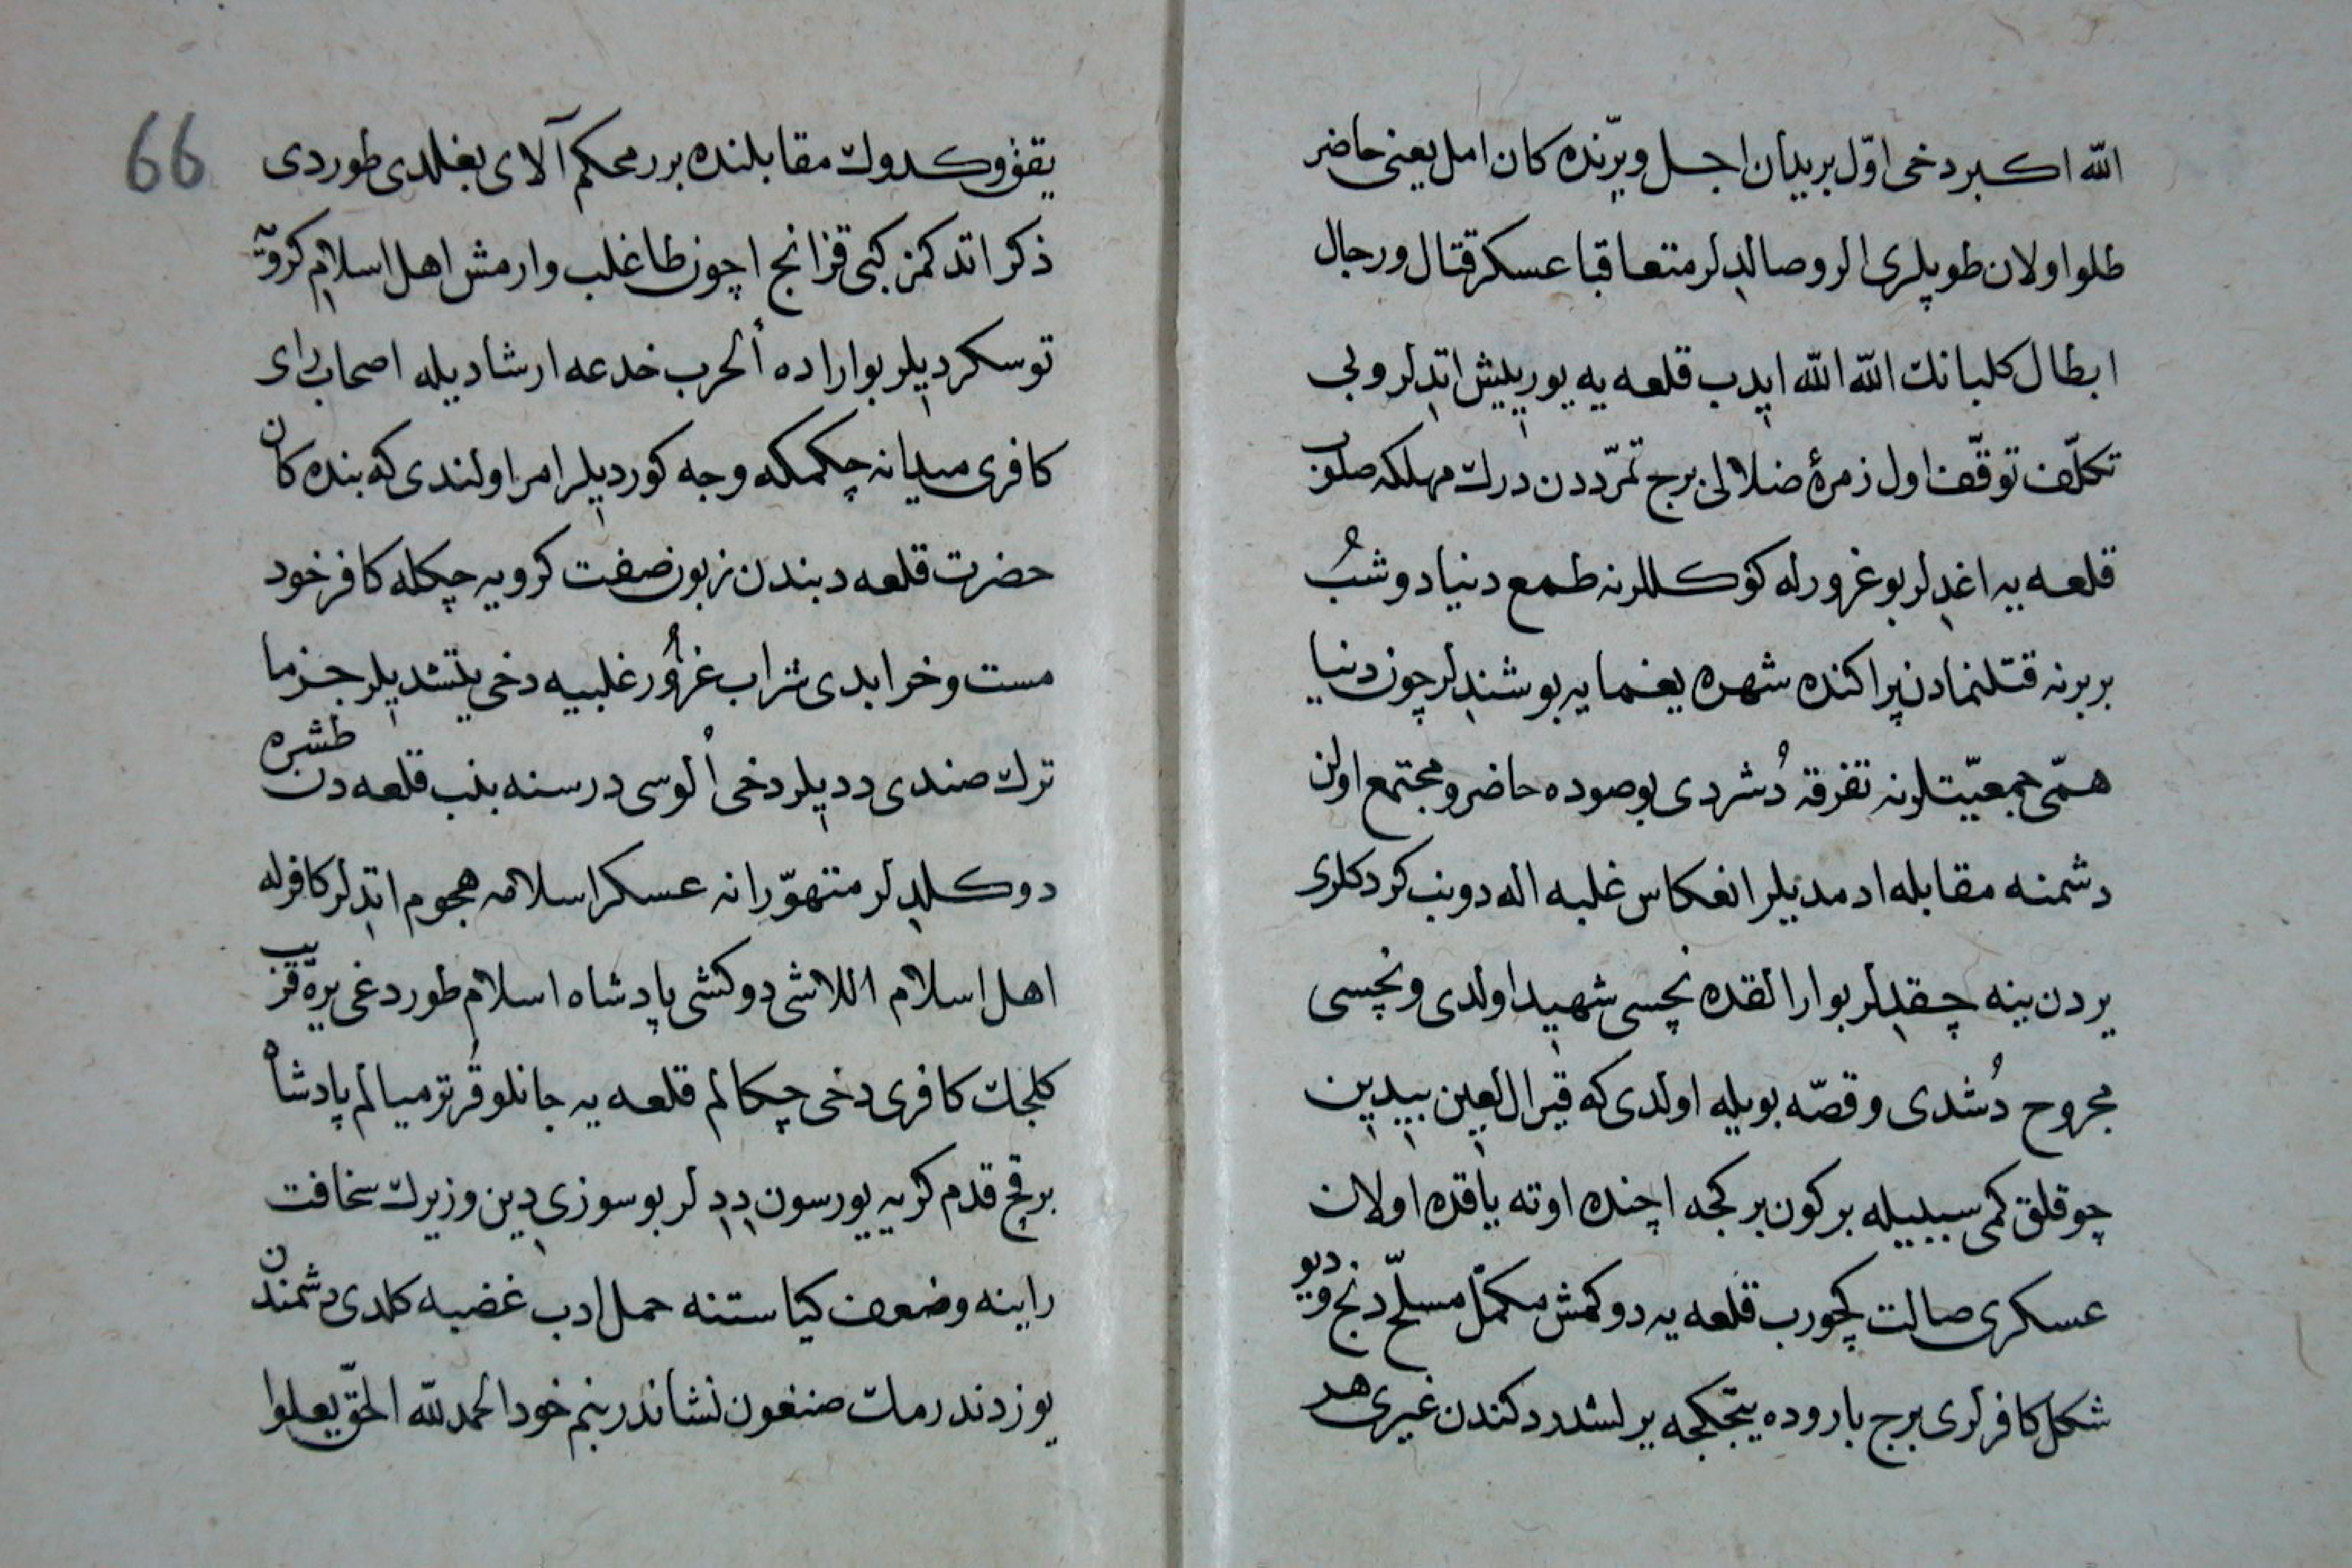 الله اکبر دخی اوّل بریدان اجل ویرّنده کان امل یعنی حاضر
طلو اولان طوپلری الر و صالدلر متعاقبا عسکر قتال و رجال
ابطال کلبانك الله الله ایدب قلعه یه یوریپش اتدلر ولی
تکلّف توقّف اول زمرۀ ضلالی برج تمرّددن درك مهلکه صلوب
قلعه یه اغدلر بو غرورله کوکللرنه طمع دنیا دوشبُ
بربرنه قتلنمادن پراکنده شهره یغمایه بوشندلر چون دنیا
همّی جمعیّتلرنه تفرقه دُشردی بوصوده حاضر و مجتمع اولن
دشمنه مقابله ادمدیلر انعکاس غلبه اله دونب کردکلری
یردن ینه چقدلر بو ارالقده نچسی شهید اولدی و نچسی
مجروح دُشدی و قصّه بویله اولدی که قیرال لعین بیدین
چوقلق کمی سببیله برکون برکجه اچنده اوته یاقده اولان
عسکری صالت کچورب قلعه یه دوکمش مکمّل مسلّح دنج و دیو
شکل کافرلری برج باروده یتجکجه یرلشدردکندن غیری هر
یقڧ وکدوك مقابلنده برر محکم آلای بغلدی طوردی
ذکر اتدکمز کبی قزانج اچون طاغلب وارمش اهل اسلام کروّیه
توسکردیلر بو اراده ألحرب خدعه ارشادیله اصحاب رای
کافری میدانه چکمکه وجه کوردیلر امر اولندی که بنده کان
حضرت قلعه دبندن زبون صفت کرویه چکله کافر خود
مست و خرابدی شراب غرُور غلبیه دخی یتشدیلر جزما
ترك صندی ددیلر دخی اُلوسی درسنه بنب قلعه دن طشره
دوکلدلر متهوّرانه عسکر اسلامه هجوم اتدلر کافرله
اهل اسلام اللاشی دوکشی پادشاه اسلام طوردغی یره قزّیب
کلجك کافری دخی چکالم قلعه یه جانلو قُرترمیالم پادشاه
برقچ قدم کریه یورسون ددلر بو سوزی دین وزیرك سخافت
راینه و ضعف کیاستنه حمل ادب غضبه کلدی دشمندن
یوز دندرمك صنغون نشاندر بنم خود الحمد لله الحقّ یعلوا
66